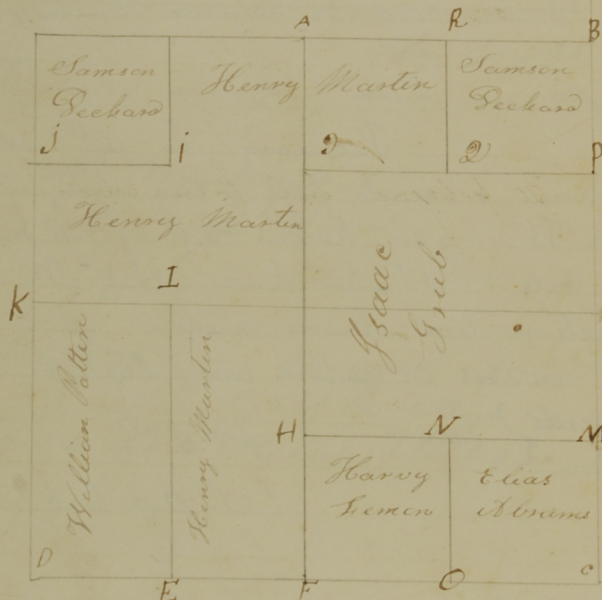 A R B
Samson
Deckard
Henry Martin
Samson
Deckard
J i 2 2 P
Henry Martin
Isaac
Grub
K I
William Potten
Henry Martin
H N M
Harvy
Lemon
Elias
Abrams
D E F O C